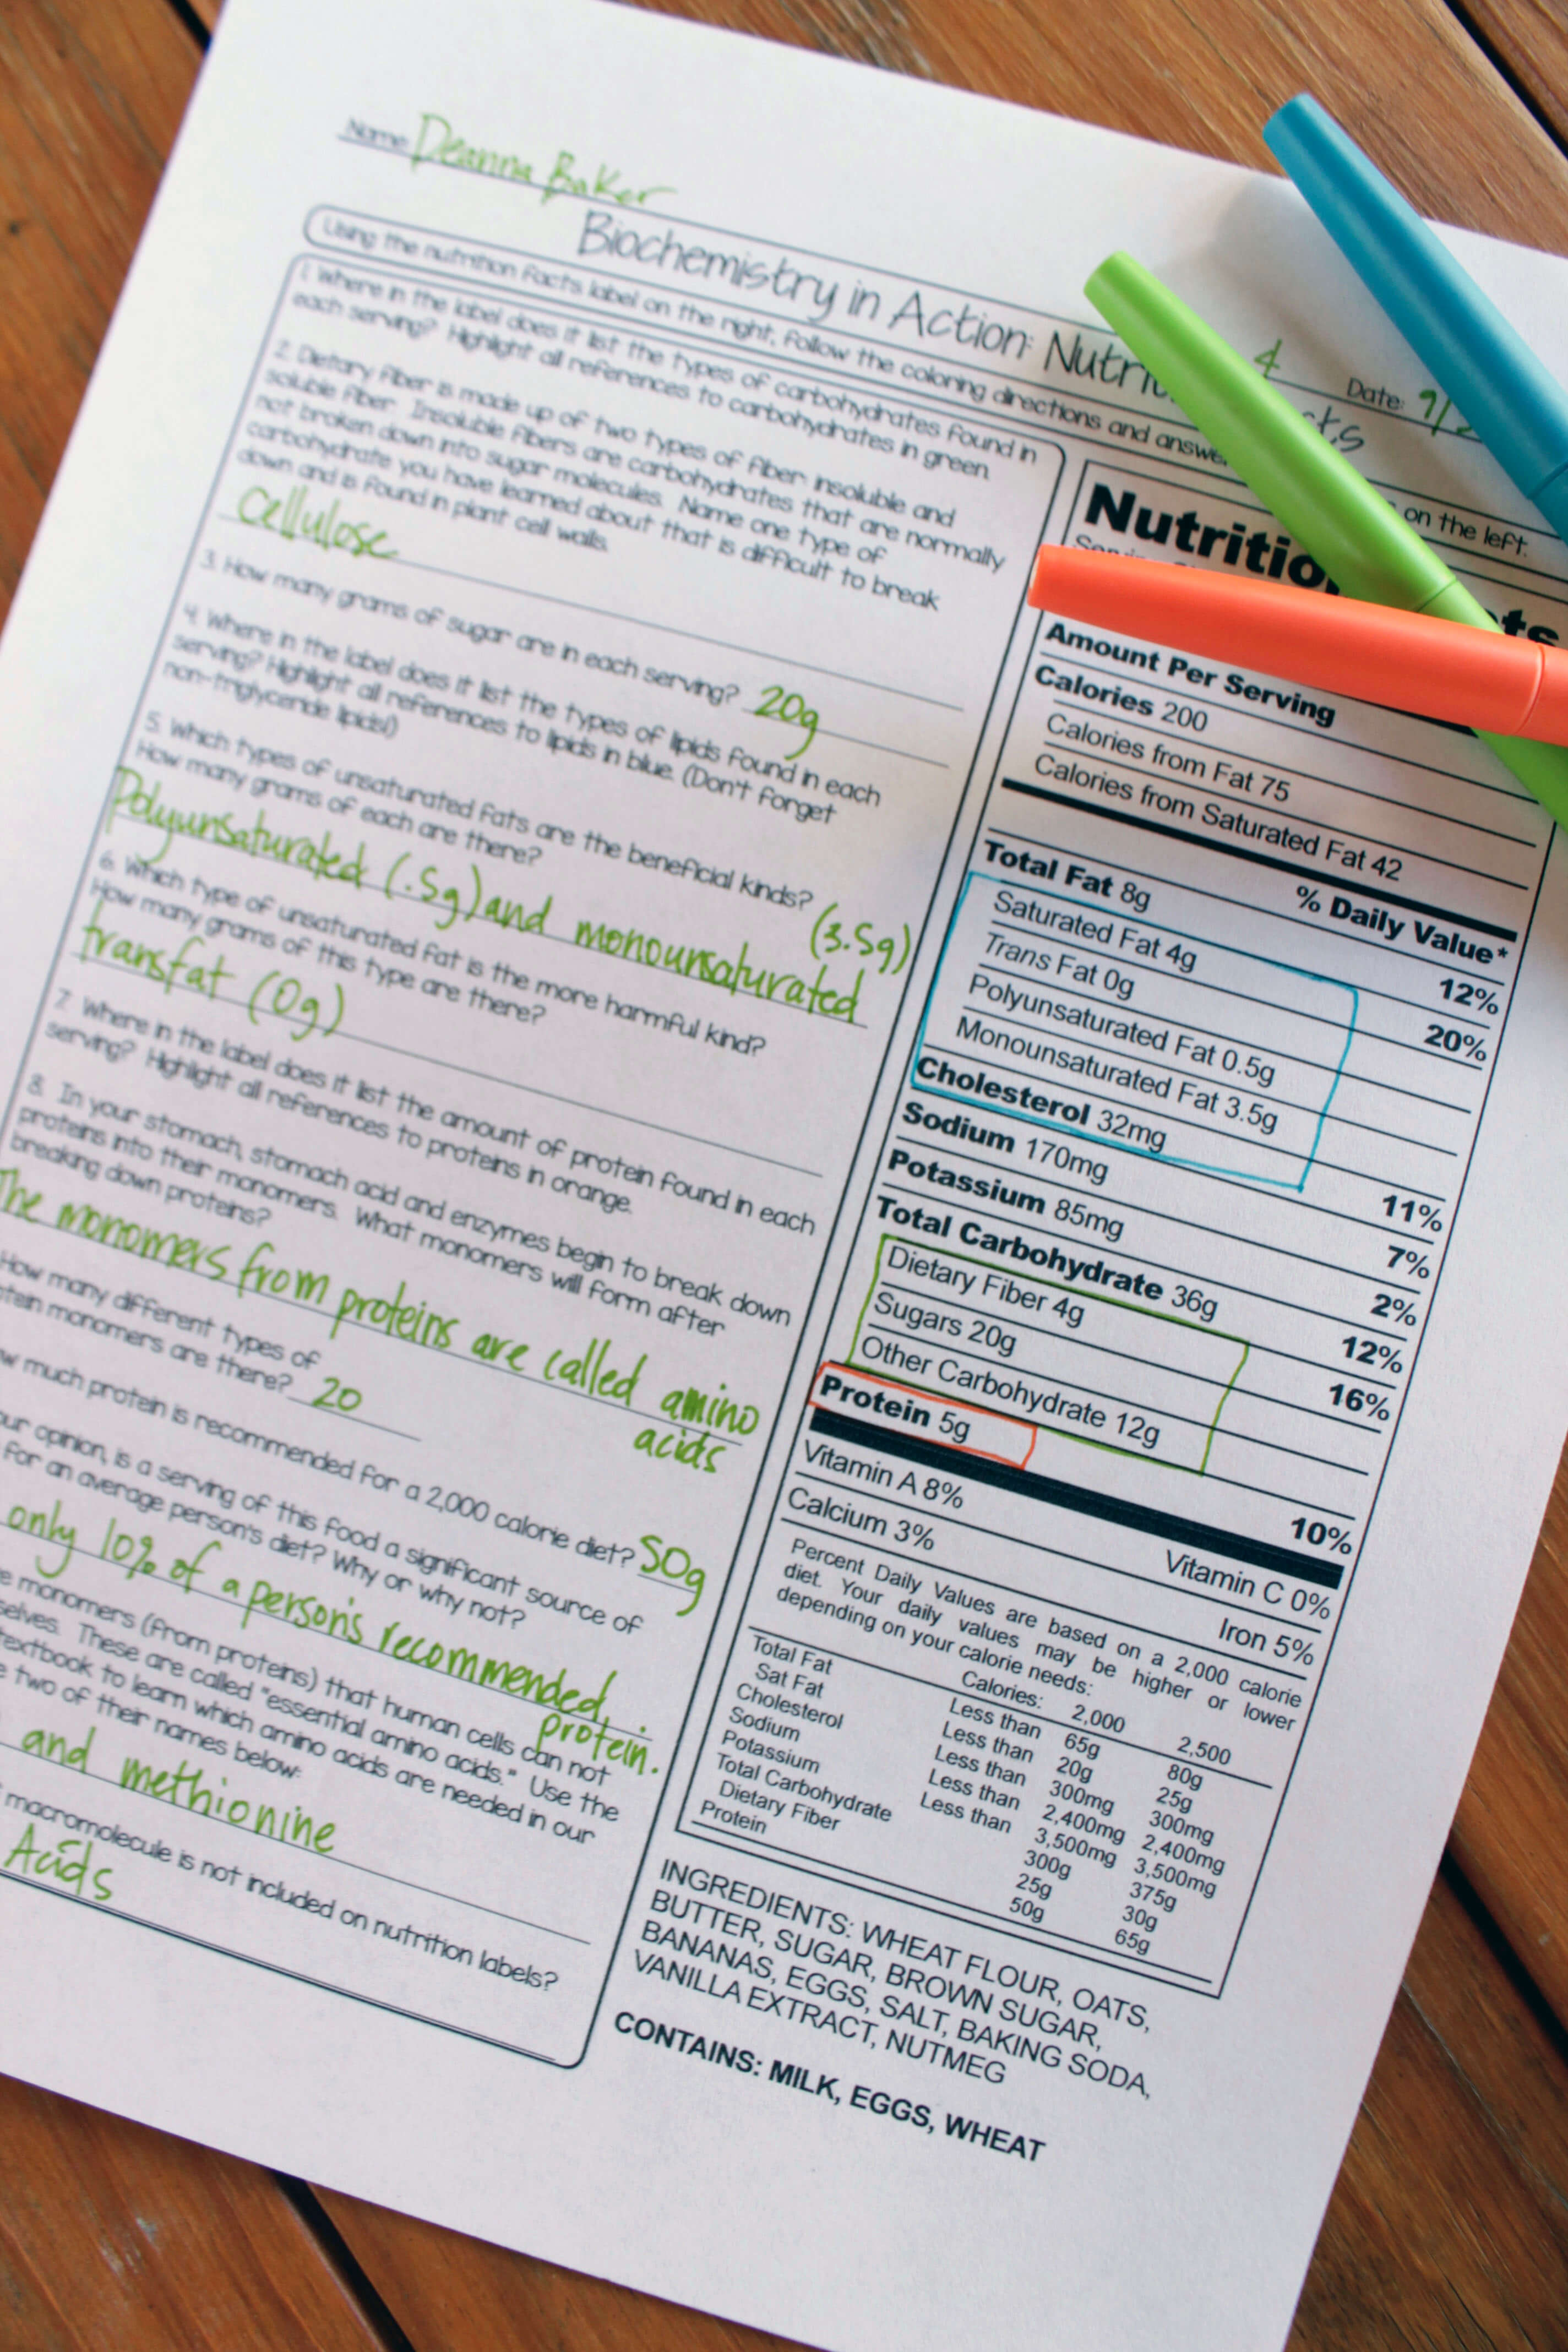 Name: Deanna Baker
4 Date: 9/2
Biochemistry in Action: Nutri cts
Using the nutrition facts label on the right, follow the coloring directions and answe on the left.
1. Where in the label does it list the types of carbohydrates found in
each serving? Highlight all references to carbohydrates in green.
2. Dietary fiber is made up of two types of fiber: insoluble and
soluble fiber. Insoluble fibers are carbohydrates that are normally
not broken down into sugar molecules. Name one type of
carbohydrate you have learned about that is difficult to break
down and is found in plant cell walls.
Cellulose
3. How many grams of sugar are in each serving? 20g
4. Where in the label does it list the types of lipids found in each
serving? Highlight all references to lipids in blue. (Don't forget
non-triglyceride lipids!)
5. Which types of unsaturated fats are the beneficial kinds?
How many grams of each are there?
Polyunsaturated (.5g) and monounsaturated (3.5g)
6. Which type of unsaturated fat is the more harmful kind?
How many grams of this type are there?
transfat (0g)
7. Where in the label does it list the amount of protein found in each
serving? Highlight all references to proteins in orange.
8. In your stomach, stomach acid and enzymes begin to break down
proteins into their monomers. What monomers will form after
breaking down proteins?
The monomers from proteins are called amino
acids
How many different types of
tein monomers are there? 20
w much protein is recommended for a 2,000 calorie diet? 50g
our opinion, is a serving of this food a significant source of
for an average person's diet? Why or why not?
only 10% of a person's recommended
protein.
e monomers (from proteins) that human cells can not
selves. These are called "essential amino acids." Use the
textbook to learn which amino acids are needed in our
e two of their names below:
and methionine
macromolecule is not included on nutrition labels?
Acids
Nutritio ts
Amount Per Serving
Calories 200
Calories from Fat 75
Calories from Saturated Fat 42
% Daily Value*
Total Fat 8g 12%
Saturated Fat 4g 20%
Trans Fat 0g
Polyunsaturated Fat 0.5g
Monounsaturated Fat 3.5g
Cholesterol 32mg 11%
Sodium 170mg 7%
Potassium 85mg 2%
Total Carbohydrate 36g 12%
Dietary Fiber 4g 16%
Sugars 20g
Other Carbohydrate 12g
Protein 5g 10%
Vitamin A 8% Vitamin C 0%
Calcium 3% Iron 5%
Percent Daily Values are based on a 2,000 calorie
diet. Your daily values may be higher or lower
depending on your calorie needs:
Calories: 2,000 2,500
Total Fat Less than 65g 80g
Sat Fat Less than 20g 25g
Cholesterol Less than 300mg 300mg
Sodium Less than 2,400mg 2,400mg
Potassium Less than 3,500mg 3,500mg
Total Carbohydrate 300g 375g
Dietary Fiber 25g 30g
Protein 50g 65g
INGREDIENTS: WHEAT FLOUR, OATS,
BUTTER, SUGAR, BROWN SUGAR,
BANANAS, EGGS, SALT, BAKING SODA,
VANILLA EXTRACT, NUTMEG
CONTAINS: MILK, EGGS, WHEAT